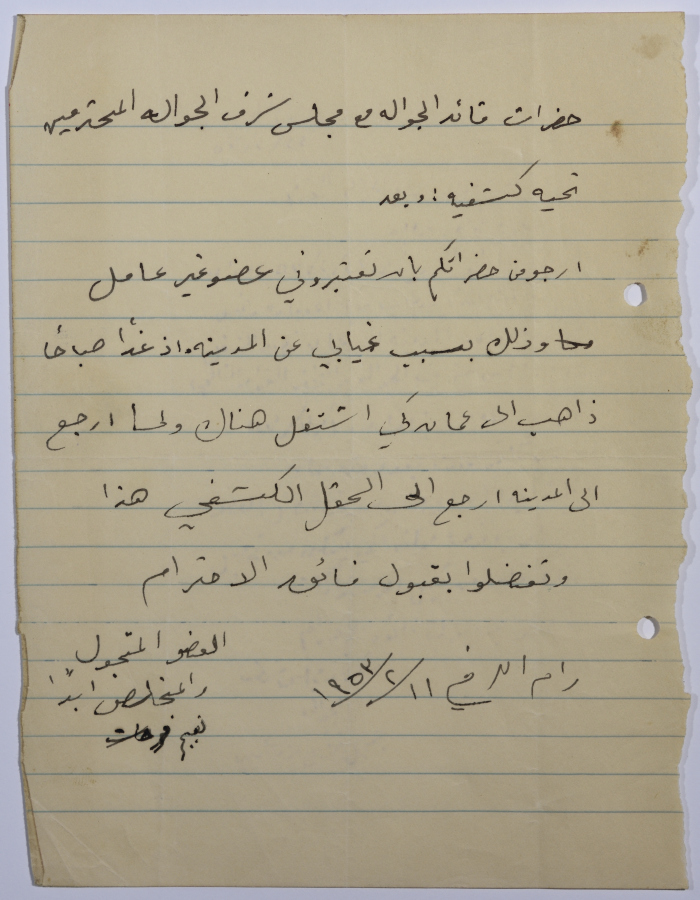 حضرات قائد الجواله مع مجلس شرف الجواله المحترمين
تحيه كشفيه : وبعد
ارجو من حضراتكم بان تعتبروني عضو غير عامل
وذلك بسبب غيابي عن المدينه اذ غدًا صباحًا
ذاهب الى عمان كي اشتغل هناك ولما ارجع
الى المدينه ارجع الى الحقل الكشفي هذا
وتفضلوا بقبول فائق الاحترام
رام الله في ١١/٢/١٩٥٣
العضو المتجول
والمخلص ابدًا
نعيم فرحات